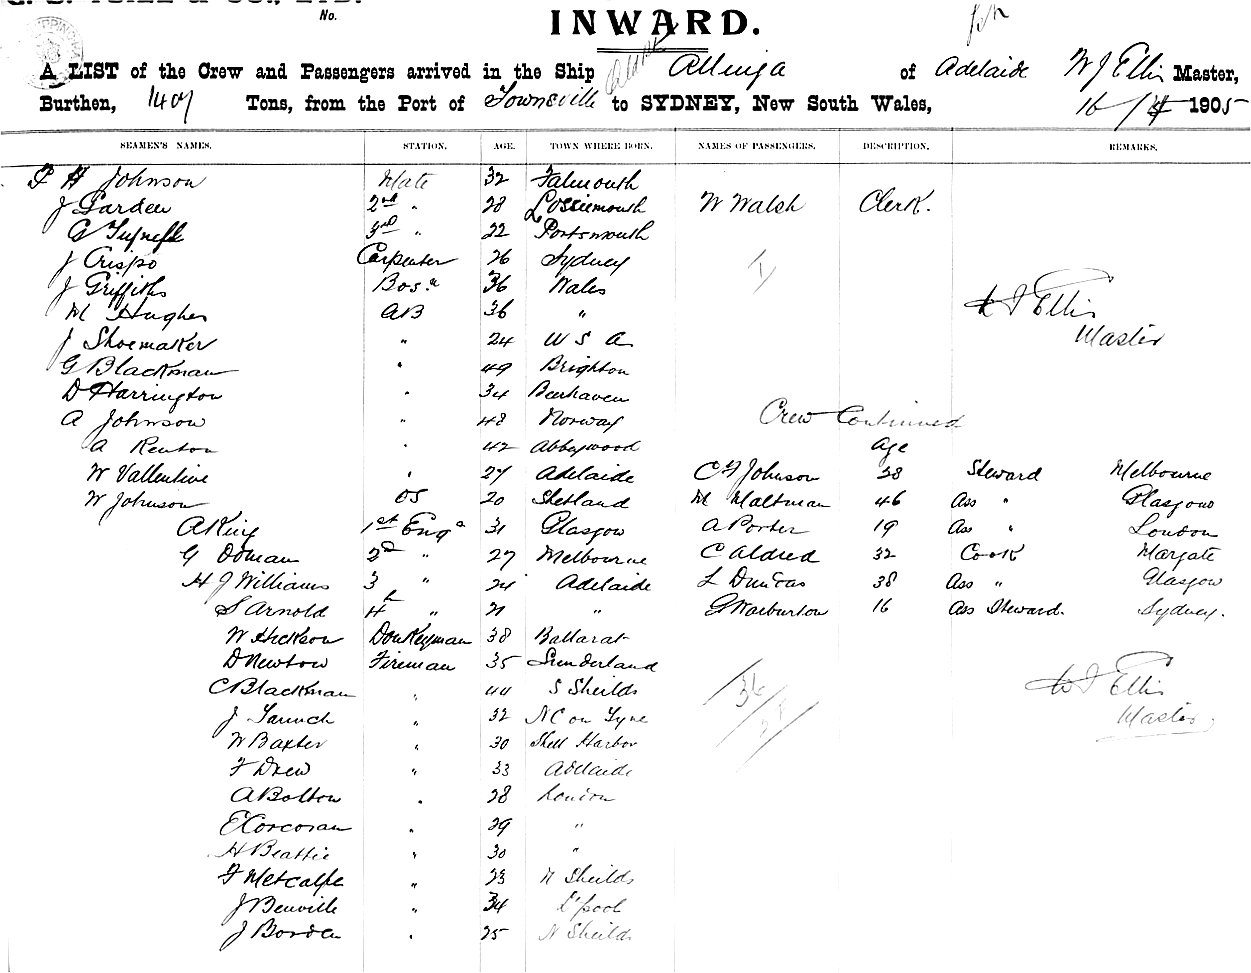 No.
INWARD.
A LIST of the Crew and Passengers arrived in the Ship Allinga of Adelaide W J Ellis Master,
Burthen, 1407 Tons, from the Port of Townsville to SYDNEY, New South Wales, 16/ 1905
SEAMEN'S NAMES. STATION. AGE. TOWN WHERE BORN. NAMES OF PASSENGERS. DESCRIPTION. REMARKS.
P H Johnson Mate 32 Falmouth
J Garden 2nd " 28 Lossiemouth W Walsh Clerk.
G 3rd " 22 Portsmouth
J Crispo Carpenter 26 Sydney
J Griffiths Bos.n 36 Wales
M Hughes AB 36 " W J Ellis
J Shoemaker " 24 U S A Master
G Blackman " 49 Brighton
D Harrington " 34 Beerhaven
A Johnson " 48 Norway Crew Continued
A Renton " 42 Abbeywood Age
W Vallentine " 27 Adelaide C F Johnson 28 Steward Melbourne
W Johnson OS 20 Shetland M Maltman 46 Ass " Glasgow
A King 1st Eng 31 Glasgow A Porter 19 Ass " London
G Doman 2nd " 27 Melbourne C Aldred 32 Cook Margate
H J Williams 3 " 24 Adelaide L Duncas 38 Ass " Glasgow
S Arnold 4th " 21 " G Warburton 16 Ass Steward. Sydney.
W Hickson Donkeyman 38 Ballarat
D Newtow Fireman 35 Sunderland
C Blackman " 44 S Sheilds W J Ellis
J " 32 N C on Tyne Master
W Baxter " 30 Shell Harbor
F Drew " 33 Adelaide
A Bolton " 28 London
E Corcoran " 29 "
H Beattie " 30 "
F Metcalfe " 23 N Sheilds
J Benville " 34 L'pool
J Borden " 25 N Sheilds